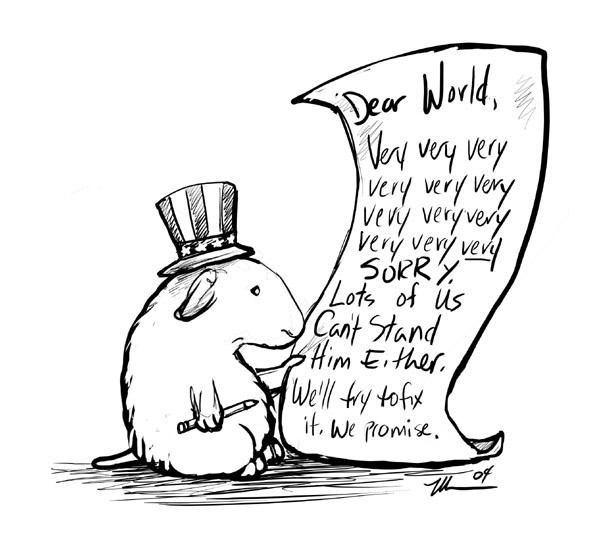 Dear World,
Very very very
very very very
very very very
very very very
SORRY.
Lots of Us
Can't Stand
Him Either.
We'll try to fix
it. We promise.
04